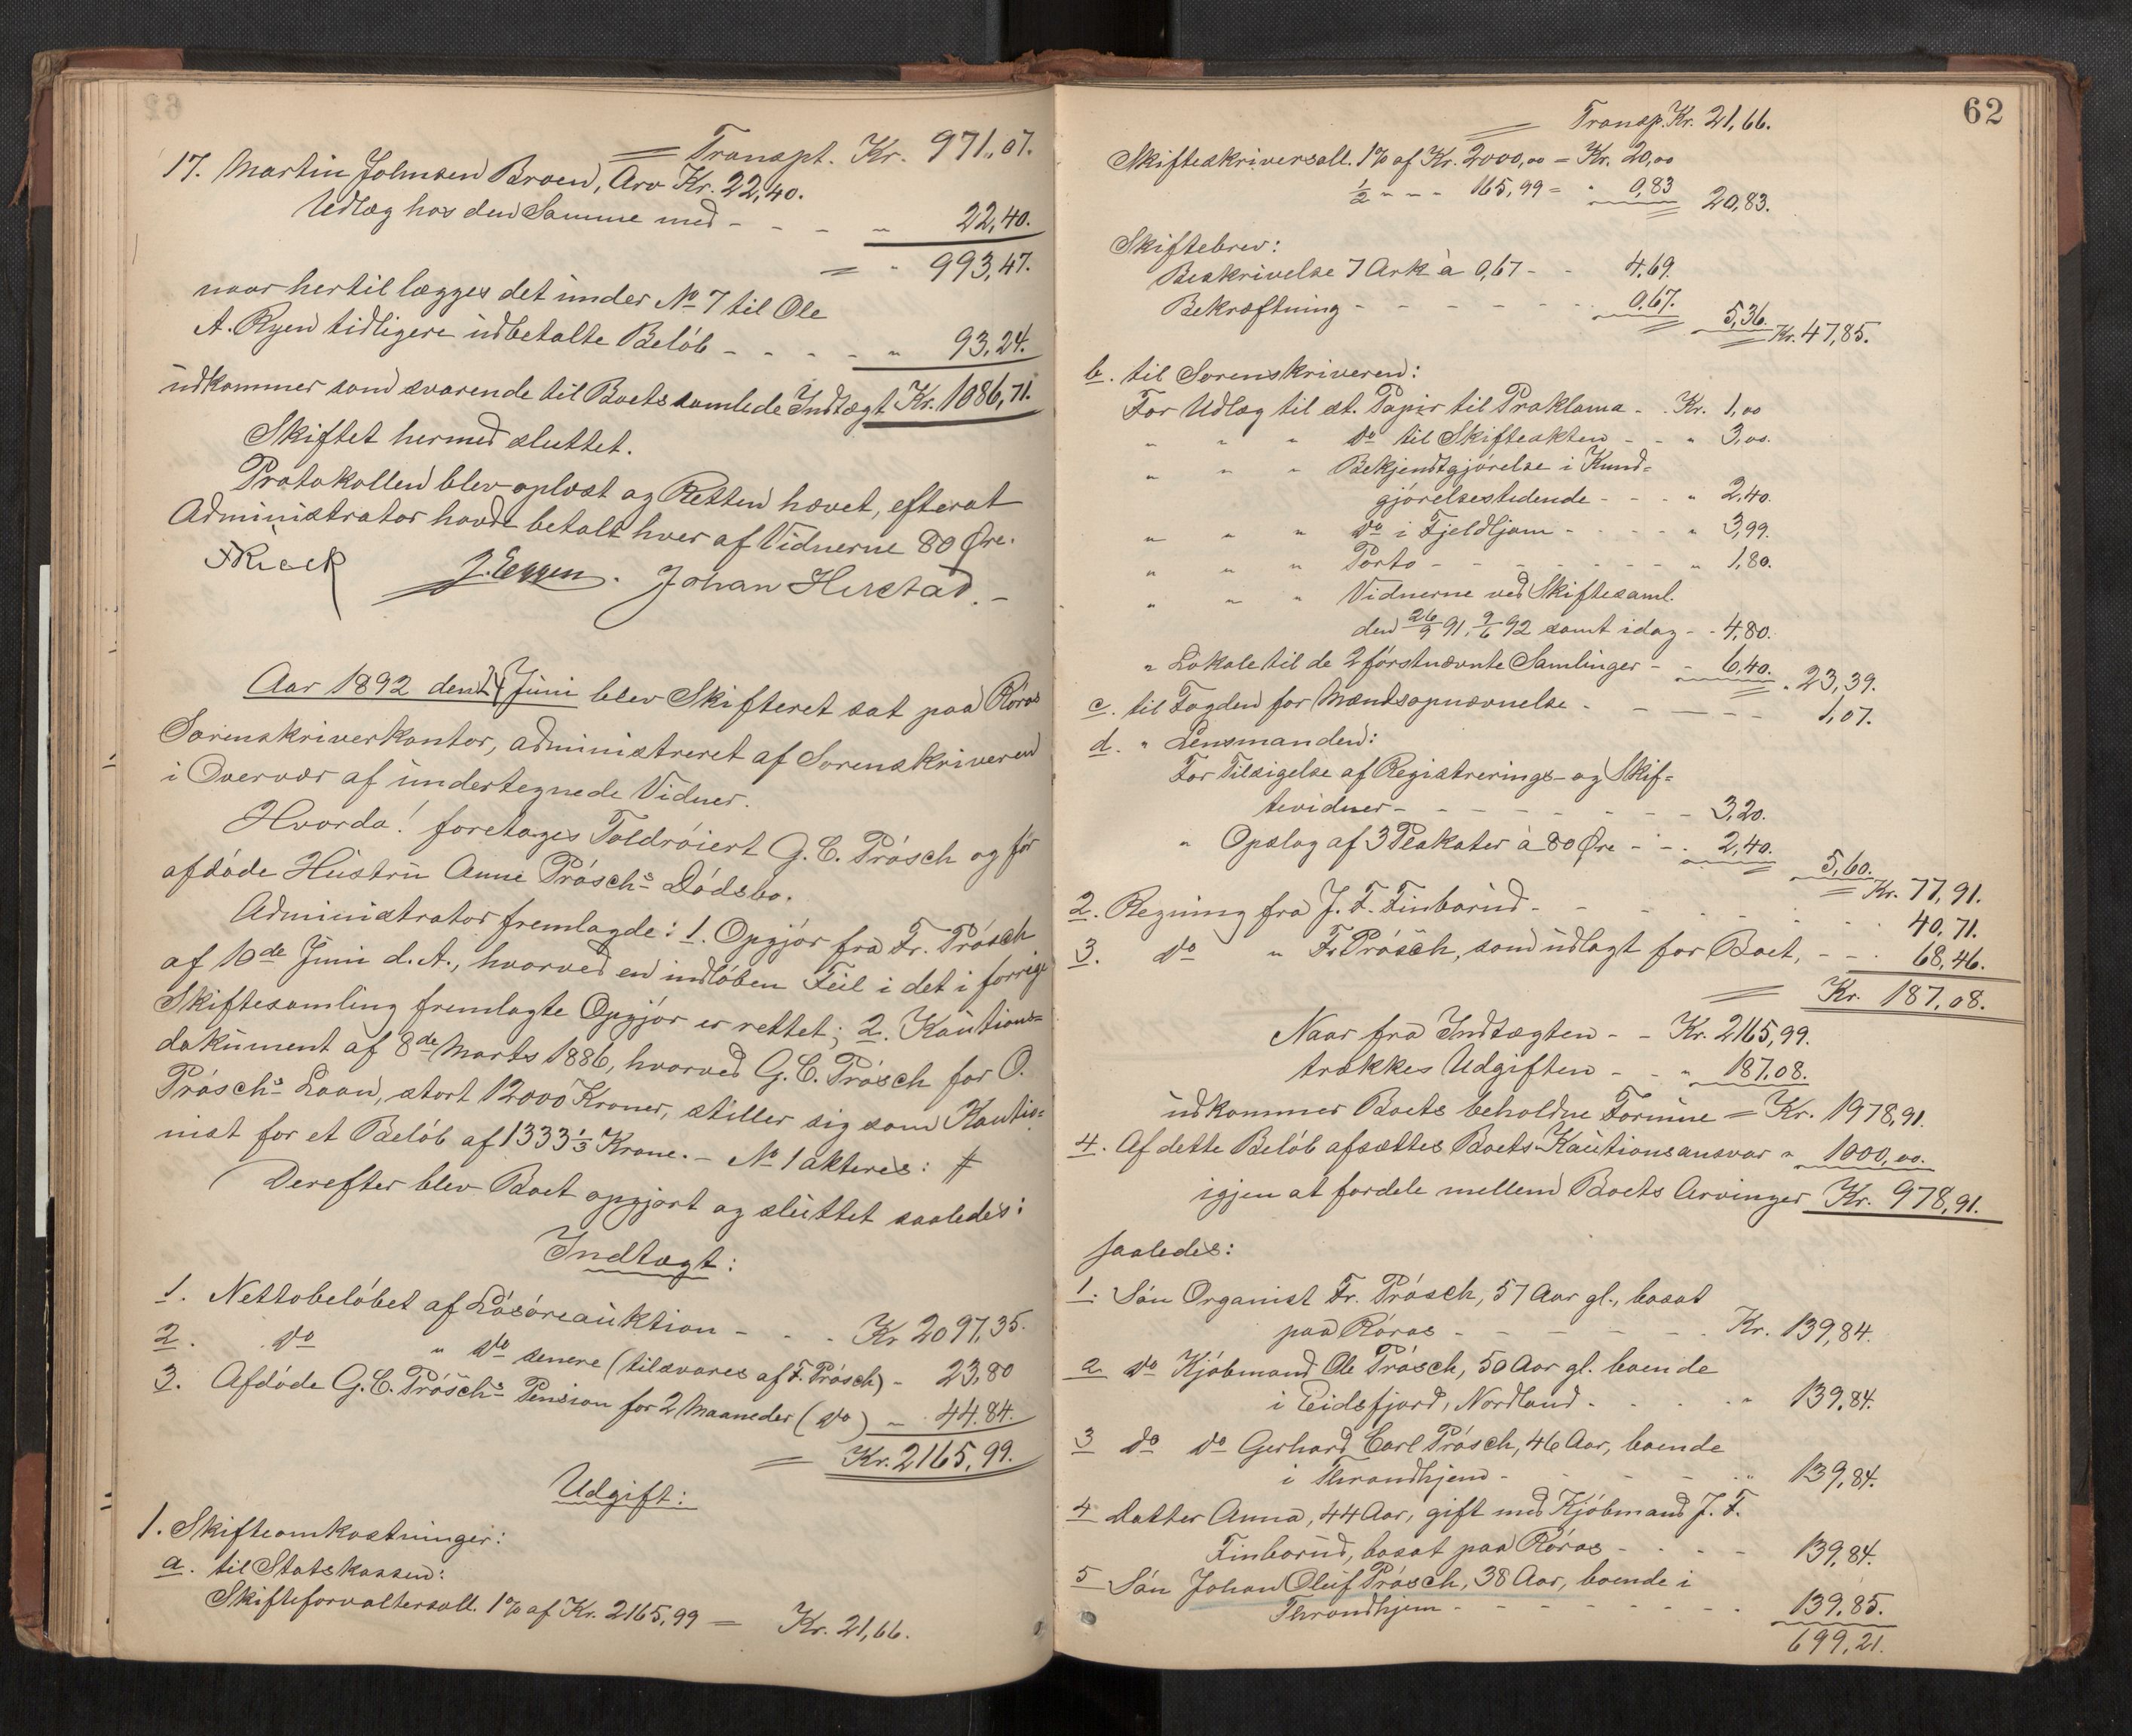 Transpt. Kr. 971,07.
17. Martin Johnsen Broen, Arv Kr. 22,40.
Udlæg hos den Samme med - - - " 22,40.
= " 993,47.
naar hertil lægges det under No 7 til Ole
A. Ryen tidligere udbetalte Beløb - - - - " 93,24.
udkommer som svarende til Boets samlede Indtægt Kr. 1086,71.
Skiftet hermed sluttet.
Protokollen blev oplæst og Retten hævet, efterat
Administrator havde betalt hver af Vidnerne 80 Øre.
J. Eggen. Johan Hirstad.-
Aar 1892 den 24 Juni blev Skifteret sat paa Röros
Sorenskriverkontor, administreret af Sorenskriveren
i Overvær af undertegnede Vidner.
Hvorda! foretages Toldröiert G. C. Prösch og før
afdöde Hustru Anne Prösch's Dödsbo.
Administrator fremlagde: 1. Opgjör fra Fr. Prösch
af 10de Juni d. A., hvorved en indlöben Feil i det i forrige
Skiftesamling fremlagte Opgjör er rettet; 2. Kautions=
dokument af 8de Marts 1886, hvorved G. C. Prösch for O.
Prösch's Laan, stort 12000 Kroner, stiller sig som Kautio=
nist for et Belöb af 1333 1/3 Krone. - No 1 akteres: #
Derefter blev Boet opgjört og sluttet saaledes:
Indtægt:
1. Nettobelöbet af Lösöreauktion - - - Kr 2097,35.
2. do " do senere (tilsvares af F. Prösch) - 23,80
3. Afdöde G. C. Prösch's Pension for 2 Maaneder (do) - 44.84.
= Kr. 2165,99.
Udgift:
1. Skifteomkostninger:
a. til Statskassen:
Skifteforvaltersall. 1% af Kr. 2165,99 = Kr. 21,66.
62
Transp. Kr. 21,66.
Skifteskriversall. 1% af Kr. 2000,00 = Kr. 20,00
1/2 " - - 165,99 = " 0,83 20,83.
Skiftebrev:
Beskrivelse 7 Ark à 0,67 - - 4,69.
Bekræftning - - - - - - 0,67. 5,36. Kr. 47,85.
b. til Sorenskriveren:
For Udlæg til st. Papir til Proklama - . Kr. 1,00
" " " do til Skifteakten - - " 3,00.
" " " Bekjendtgjörelse i Kund=
gjörelsestidende - - - " 2,40.
" " " do i Fjeldljom - - - - " 3,99.
" " " Porto - - - - - - - " 1,80.
" " " Vidnerne ved Skiftesaml.
den 26/9 91, 9/6 92 samt idag - - 4,80.
" Lokale til de 2 förstnævnte Samlinger - - 6,40. " 23,39.
c. til Fogden for Mændsopnævnelse - - - - - 1,07.
d. " Lensmanden:
For Tilsigelse af Registrerings- og Skif=
tevidner - - - - - - - - 3,20.
" Opslag af 3 Plakater à 80 Øre - - - 2,40. 5,60.
= Kr. 77,91.
2. Regning fra J. F. Finborud - - - - - - 40,71.
3. do " Fr. Prösch, som udlagt for Boet, - - . 68,46.
= Kr. 187,08.
Naar fra Indtægten - - Kr. 2165,99.
trækkes Udgiften - - " 187.08.
udkommer Boets beholdne Formue = Kr. 1978,91.
4. Af dette Belöb afsættes Boets Kautionsansvar " 1000,00.
igjen at fordele mellem Boets Arvinger Kr. 978,91.
saaledes:
1. Sön Organist Fr. Prösch, 57 Aar gl., bosat
paa Röros - - - - - - - Kr. 139,84.
2 do Kjöbmand Ole Prösch, 50 Aar gl. boende
i Eidsfjord, Nordland - - - - " 139,84.
3 do do Gerhard Carl Prösch, 46 Aar, boende
i Throndhjem - - - - - " 139,84.
4 Datter Anna, 44 Aar, gift med Kjöbmand J. F.
Finborud, bosat paa Röros - - - - 139,84.
5 Sön Johan Oluf Prösch, 38 Aar, boende i
Throndhjem - - - - - - - - 139,85.
699,21.